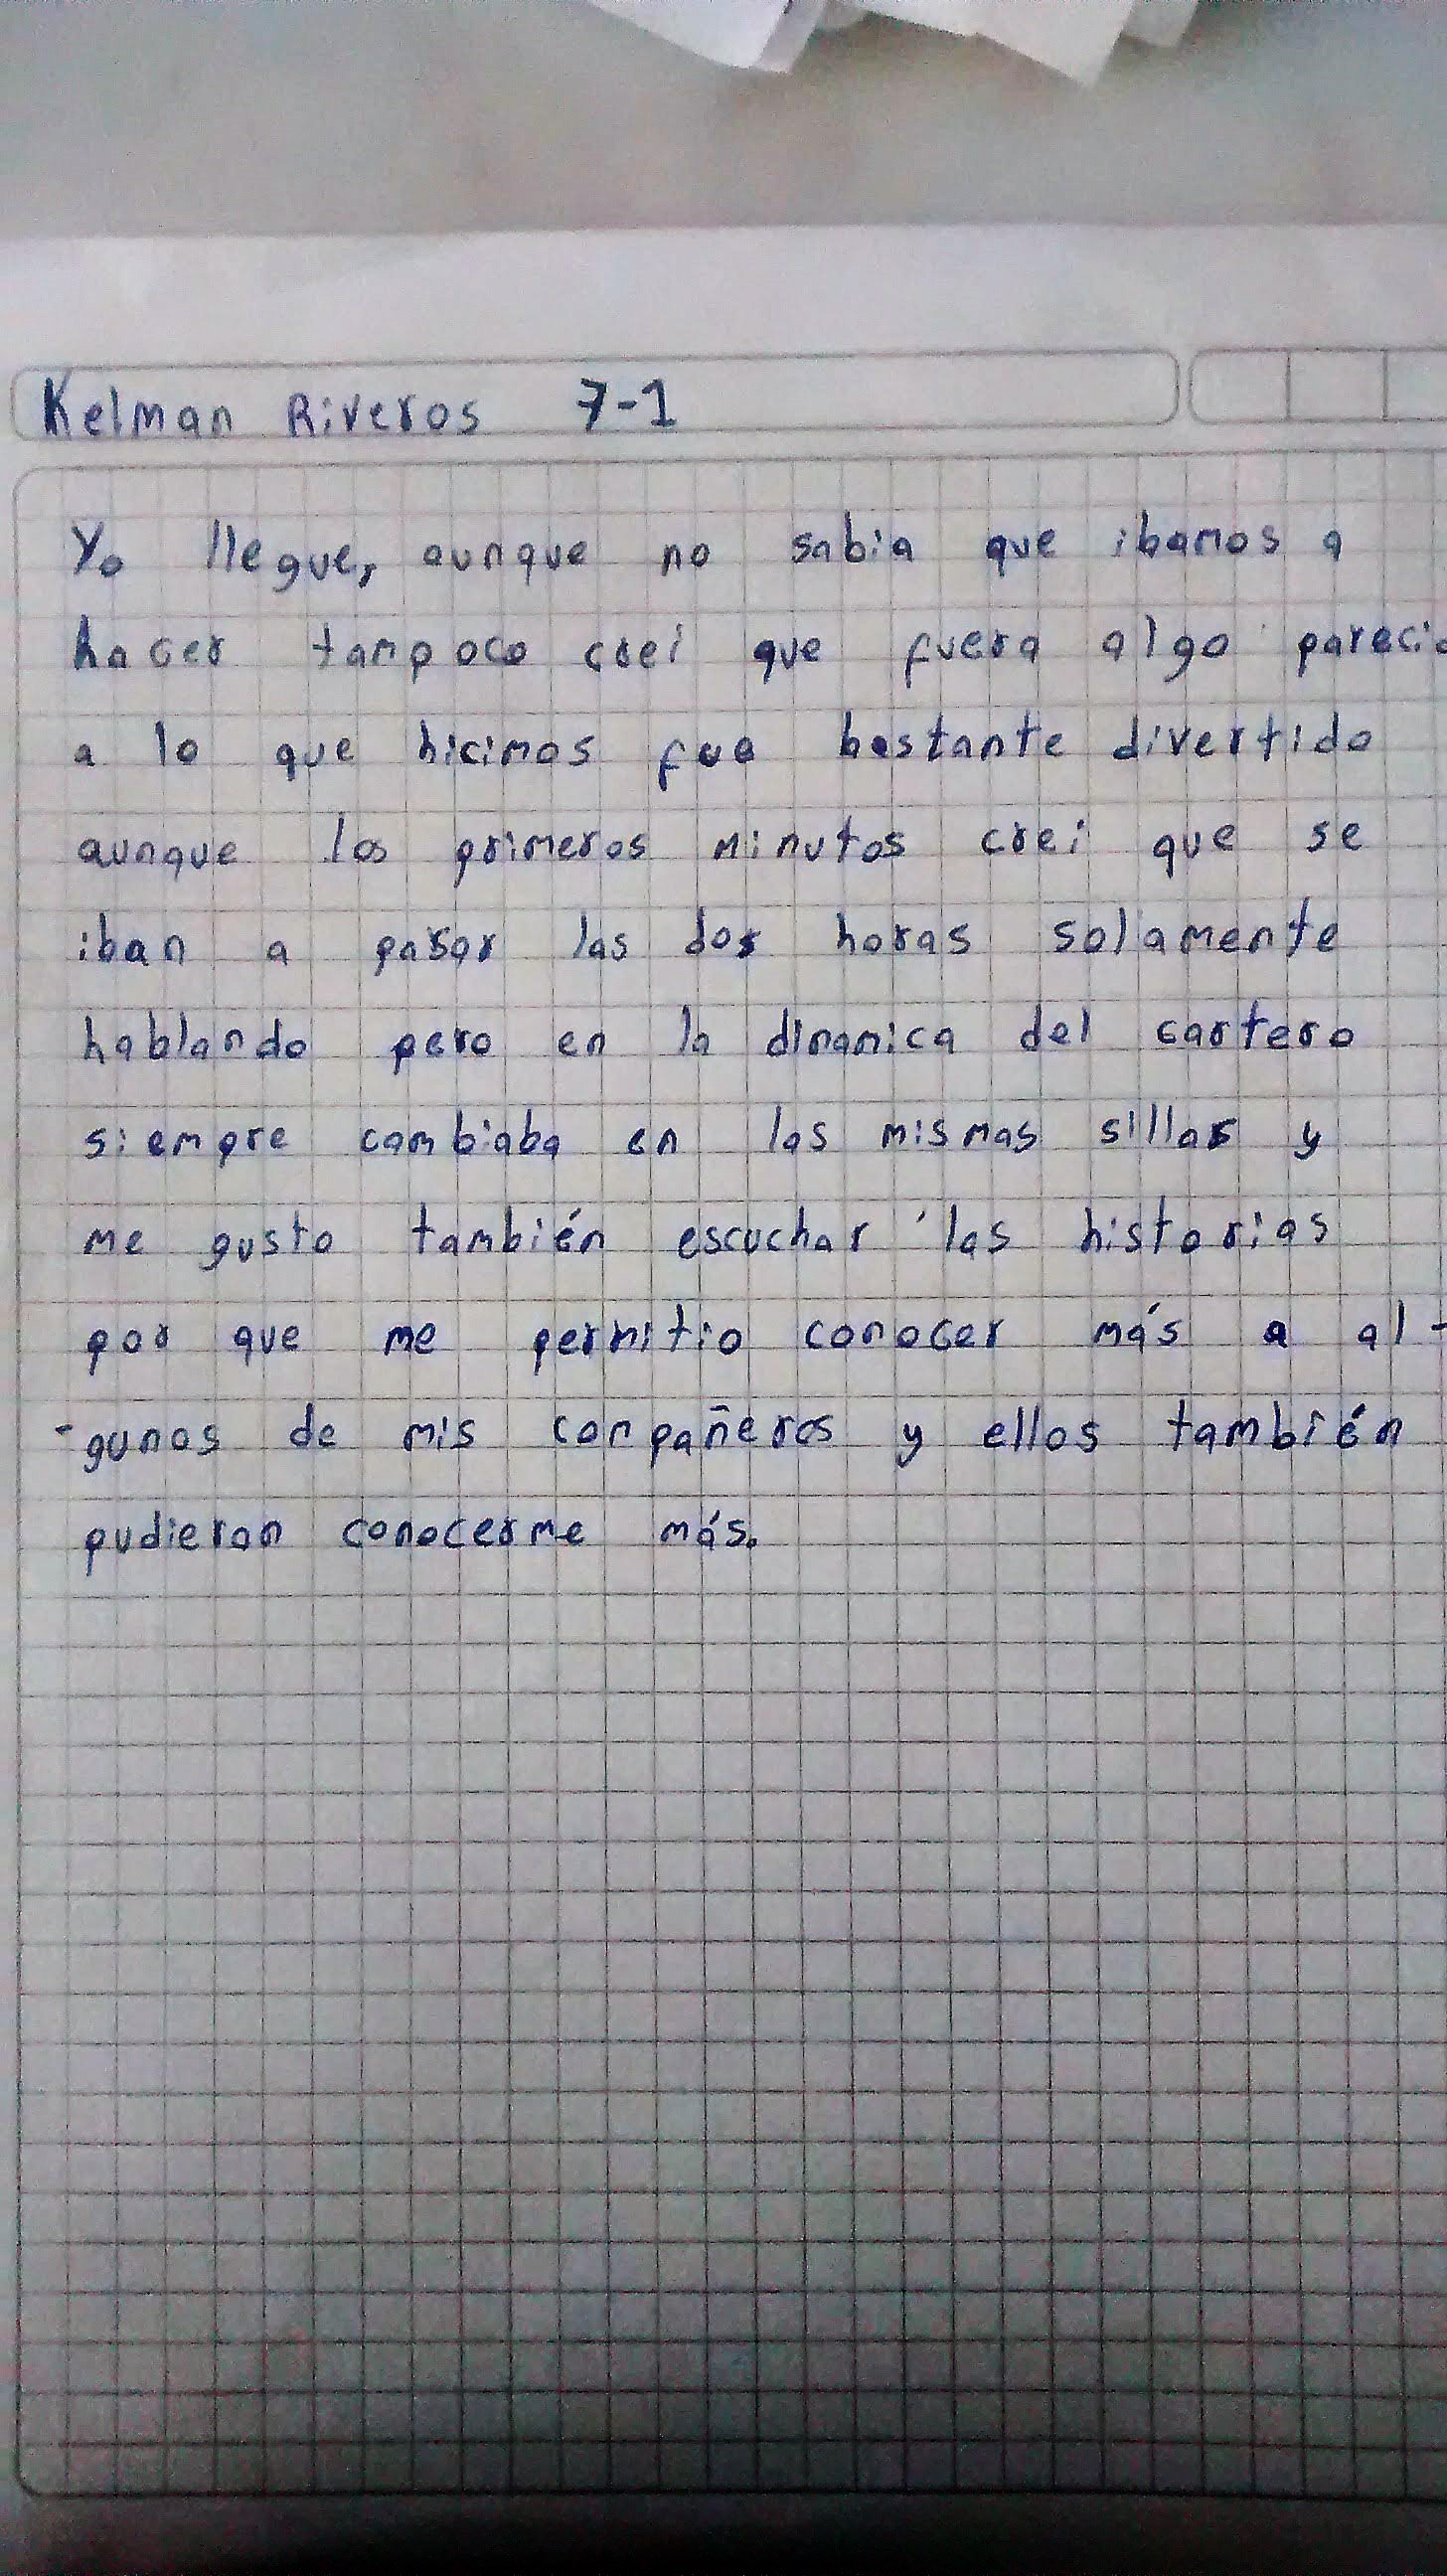 Kelman Riveros 7-1
Yo llegue, aunque no sabia que ibamos a
hacer tampoco crei que fuera algo
a lo que hicimos fue bastante divertido
aunque los primeros minutos crei que se
iban a pasar las dos horas solamente
hablando pero en la dinamica del cartero
siempre cambiaba en las mismas sillas y
me gusto también escuchar las historias
por que me permitio conocer más a al-
-gunos de mis compañeros y ellos también
pudieron conocerme más.